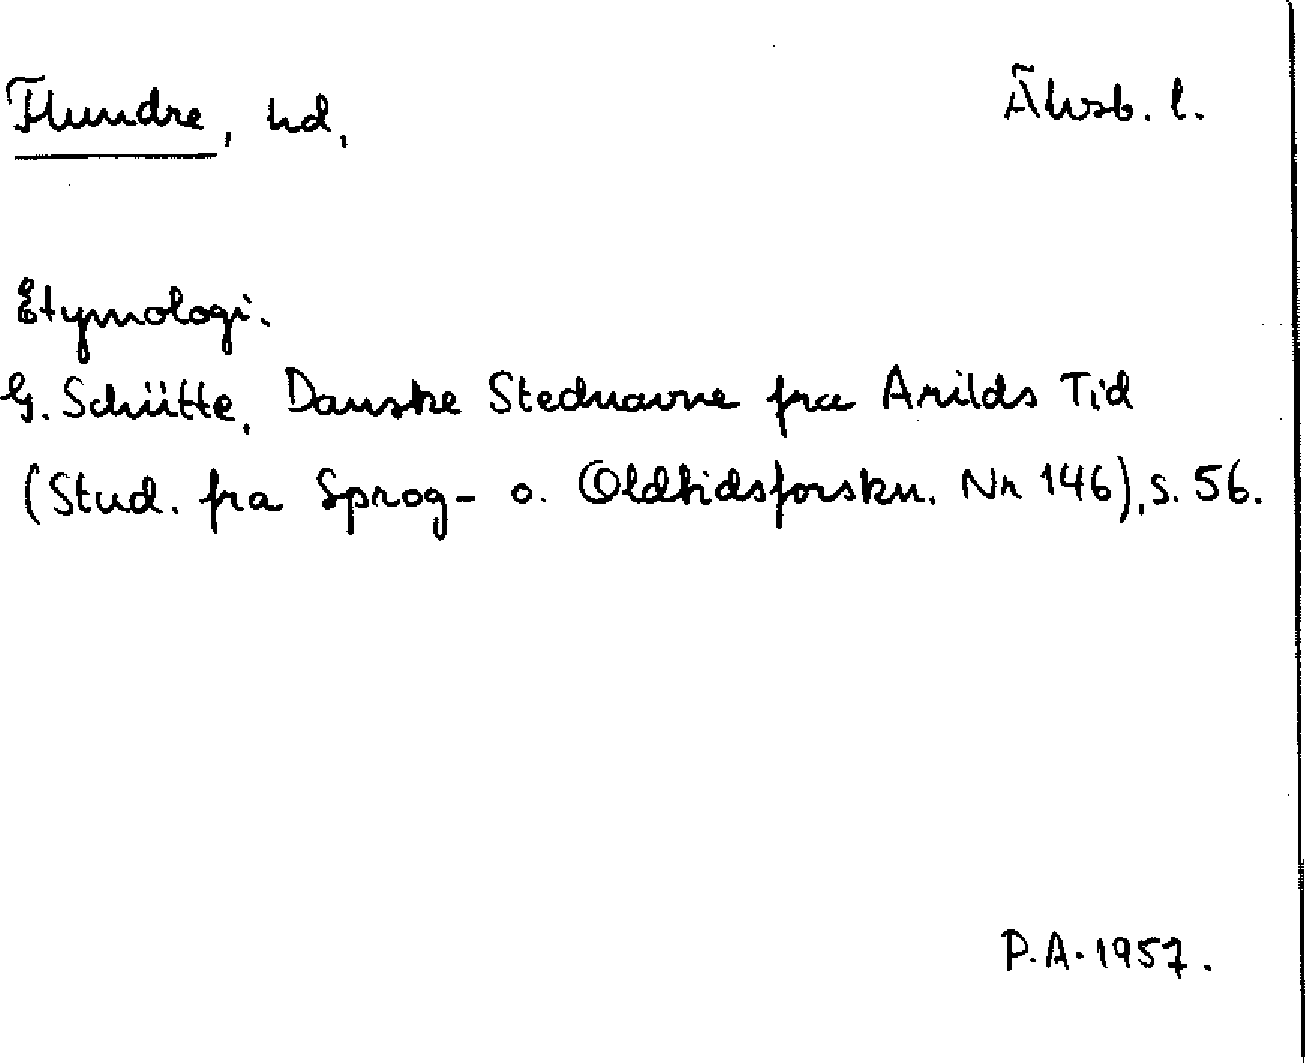 Flundre, hd,
Älvsb. l.
Etymologi.
G. Schütte, Danske Stednavne fra Arilds Tid
(Stud. fra Sprog- o. Oldtidsforskn. Nr 146), s. 56.
P.A. 1957.